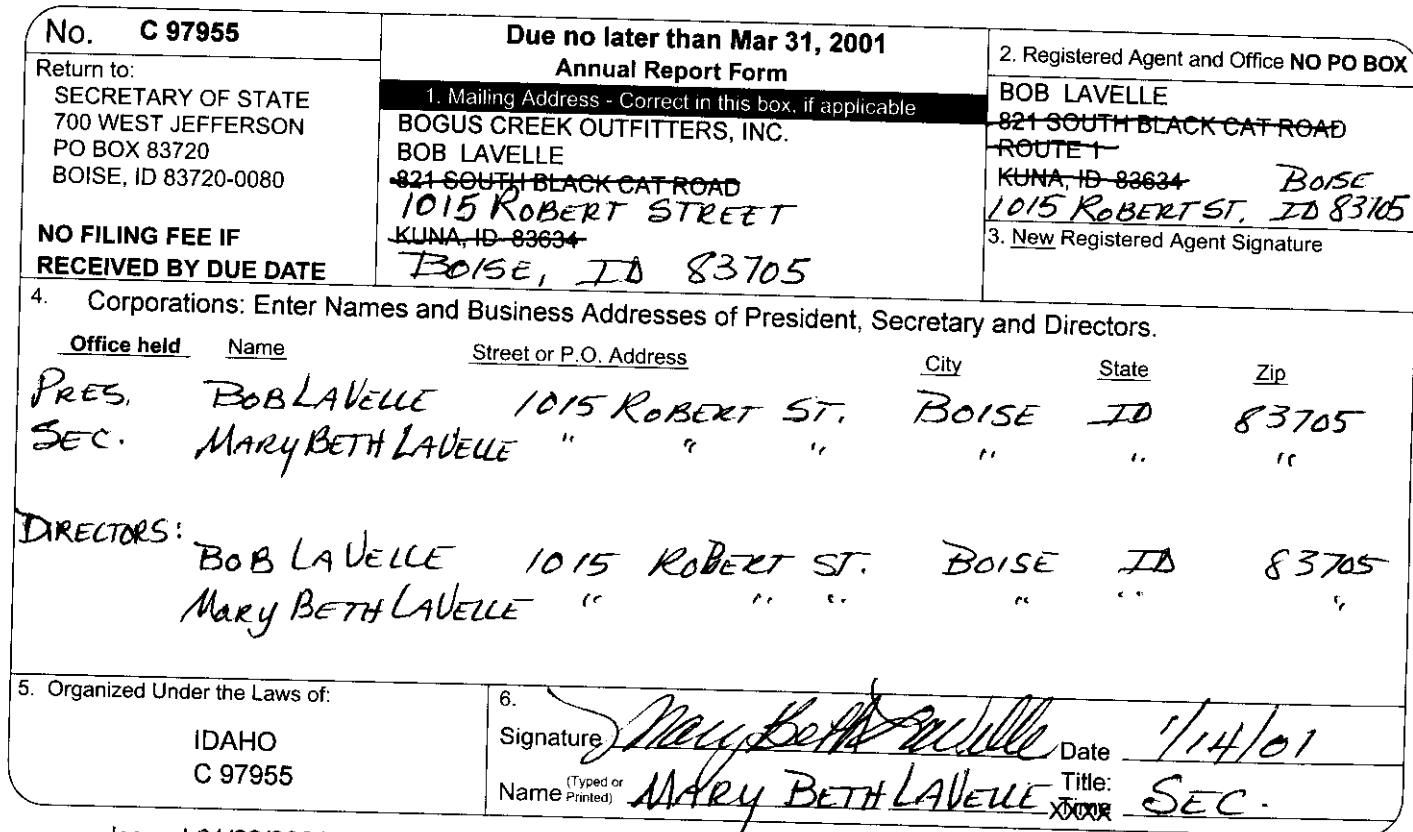 No. C 97955
Return to:
SECRETARY OF STATE
700 WEST JEFFERSON
PO BOX 83720
BOISE, ID 83720-0080
NO FILING FEE IF
RECEIVED BY DUE DATE
Due no later than Mar 31, 2001
Annual Report Form
1. Mailing Address - Correct in this box, if applicable
BOGUS CREEK OUTFITTERS, INC.
BOB LAVELLE
821 SOUTH BLACK CAT ROAD
1015 ROBERT STREET
KUNA, ID 83634
BOISE, ID 83705
2. Registered Agent and Office NO PO BOX
BOB LAVELLE
821 SOUTH BLACK CAT ROAD
ROUTE 1
KUNA, ID 83634 BOISE
1015 ROBERT ST. ID 83705
3. New Registered Agent Signature
4. Corporations: Enter Names and Business Addresses of President, Secretary and Directors.
Office held Name Street or P.O. Address City State Zip
PRES. BOB LAVELLE 1015 ROBERT ST. BOISE ID 83705
SEC. MARY BETH LAVELLE " " " " " "
DIRECTORS:
BOB LAVELLE 1015 ROBERT ST. BOISE ID 83705
MARY BETH LAVELLE " " " " " "
5. Organized Under the Laws of:
IDAHO
C 97955
6.
Signature Mary Beth LaVelle Date 1/14/01
Name (Typed or Printed) MARY BETH LAVELLE Title: SEC.